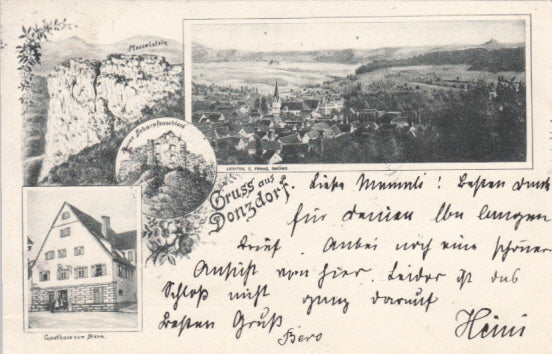 Messelstein
Scharpfenschloss
LICHTDR. C. FRANZ, GMÜND.
Gruss aus
Donzdorf.
Gasthaus zum Stern.
Liebe Mammli! Besten Dank
für deinen lben langen
Brief. Anbei noch eine schöne
Ansicht von hier. Leider ist das
Schloß nicht ganz darauf
Besten Gruß
Heini